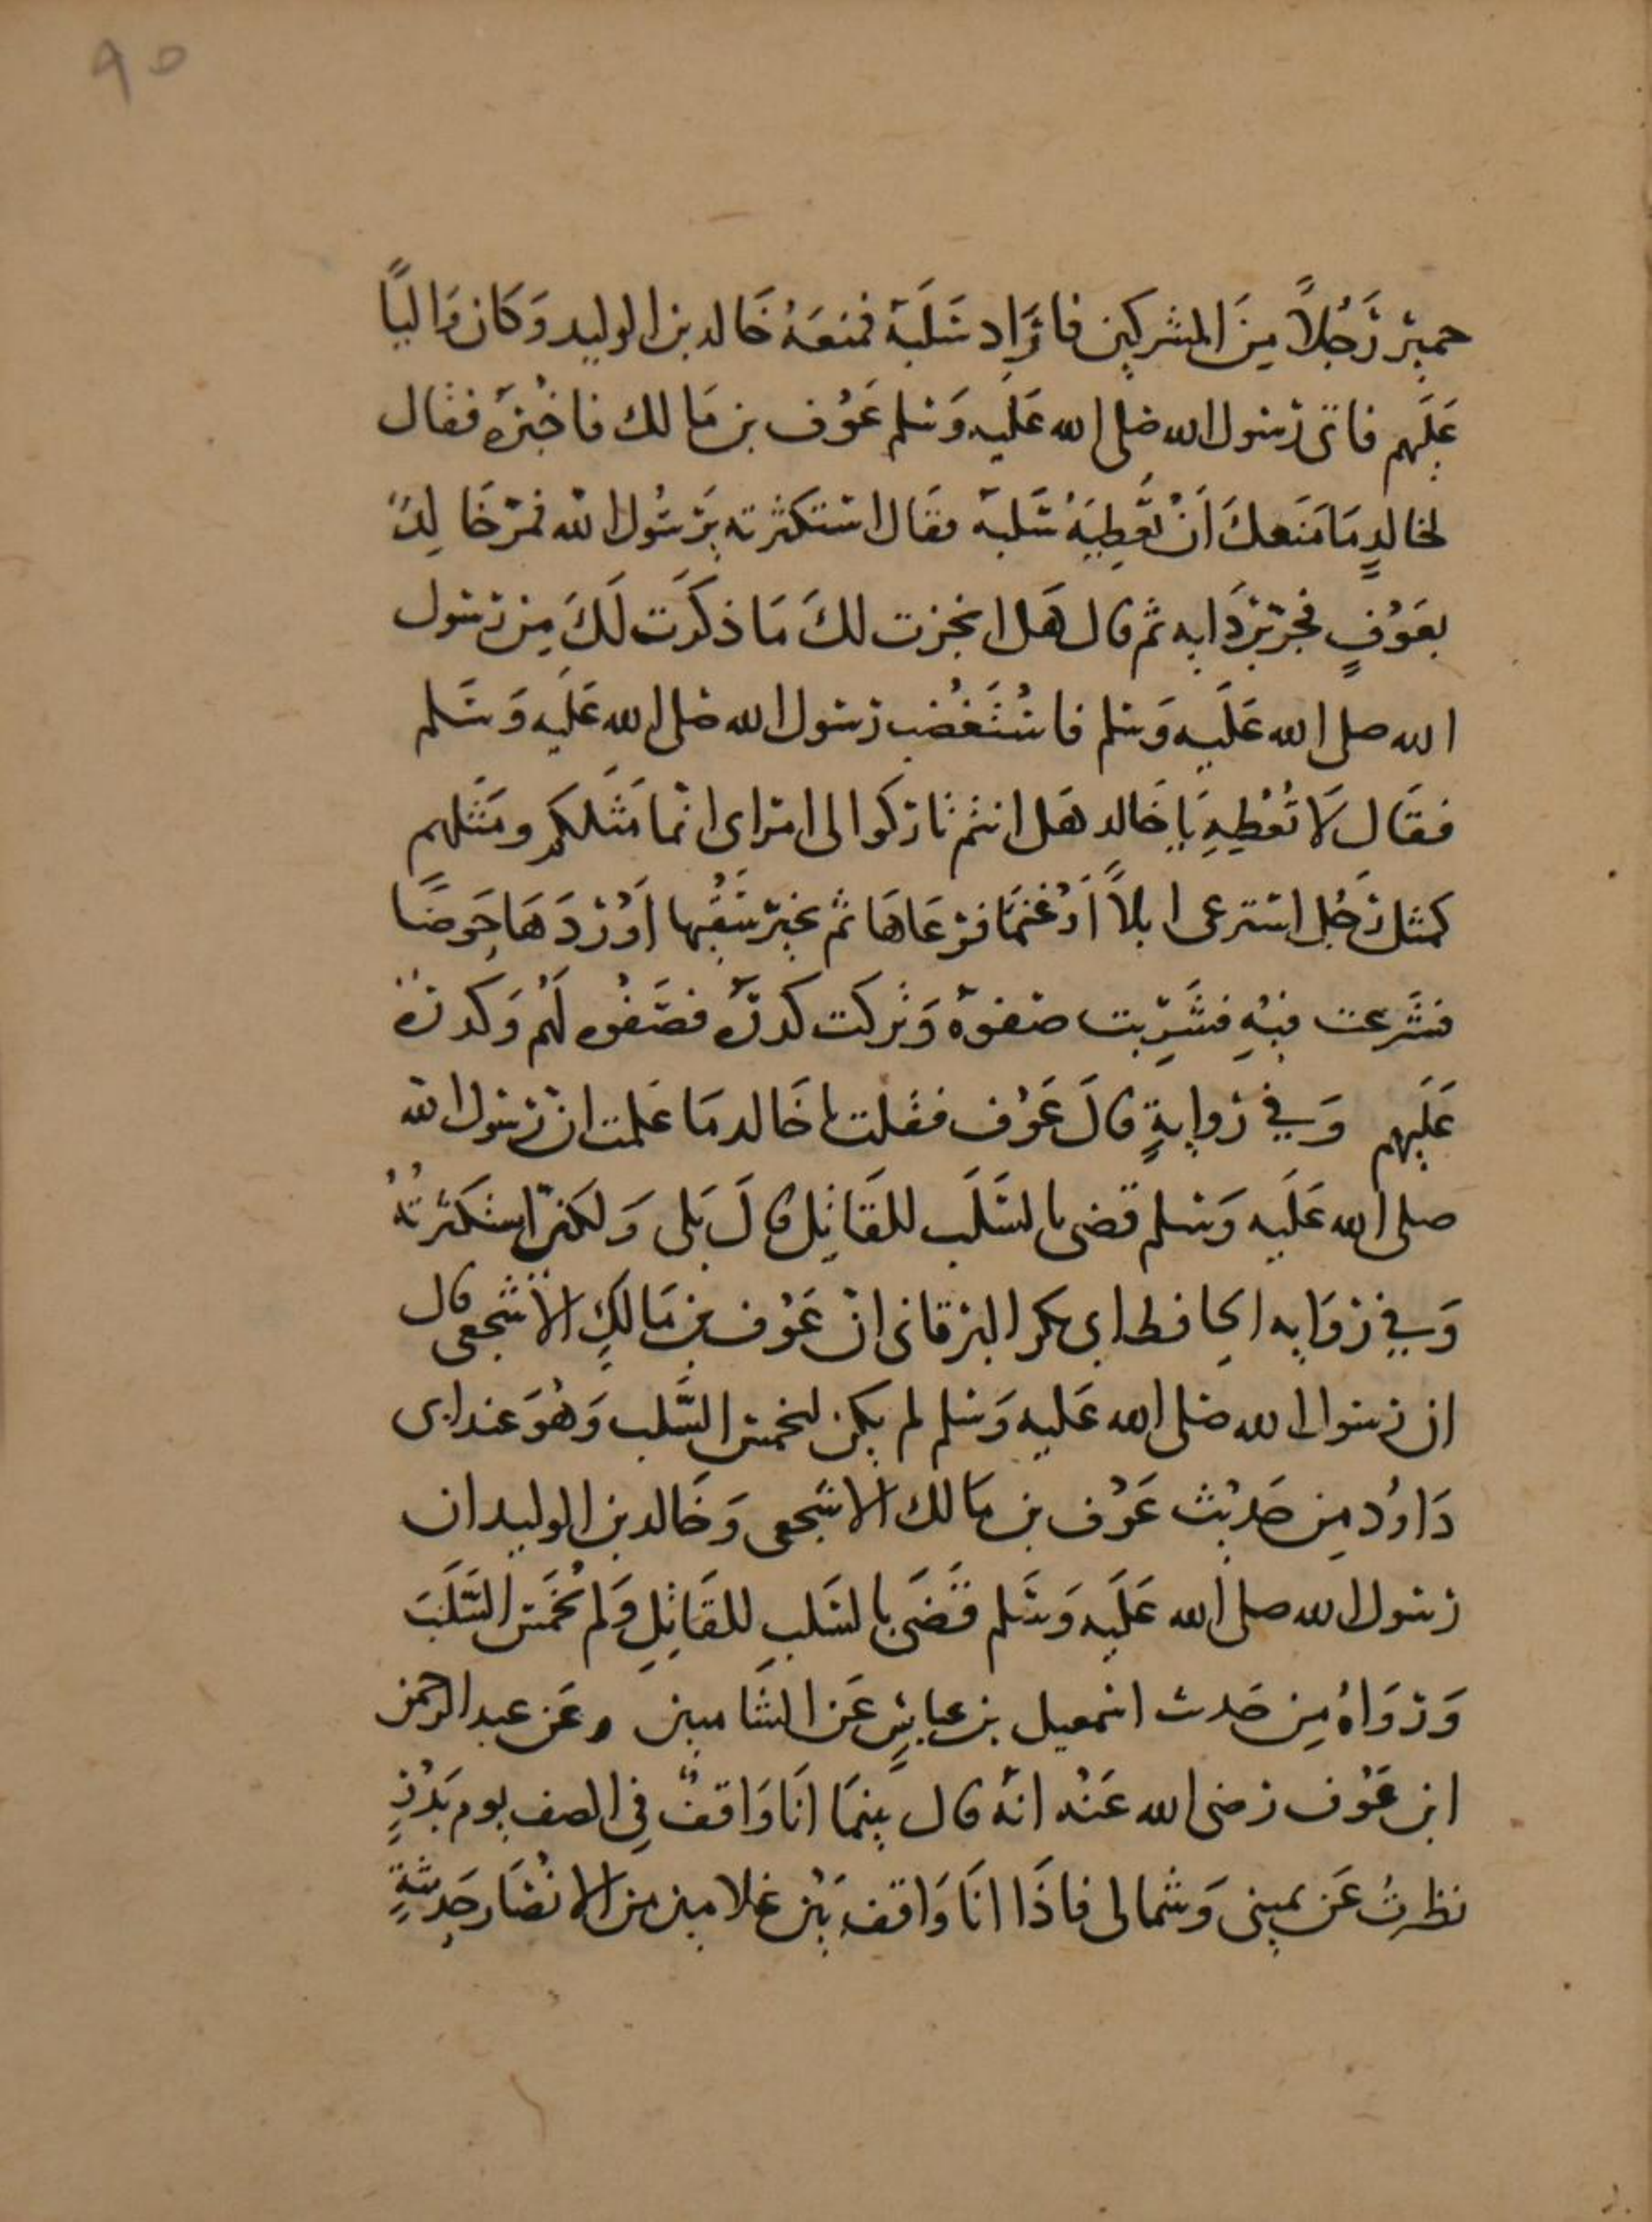 ٩٥
حمير رَجُلاً مِنَ المشركين فاَرَاد سَلَبَه فمنعَهُ خَالد بن الوليد وَكَان وَاليًا
عَلَيهم فاتى رسول الله صلى الله عَلَيه وَسلم عَوْف بن مَالك فاخْبَره فقال
لخالدٍ مَا مَنَعكَ اَنْ تُعْطِيَهُ سَلَبه فقَال استكثرته يَرسُول الله فمرّ خَالِدٌ
بعَوْفٍ فجرّ برَدَايه ثم قال هَل انجزت لكَ مَا ذكَرَت لَكَ مِن رسول
الله صلى الله عَلَيه وَسلم فاسْتُغْضِب رسول الله صَلى الله عَلَيه وَسَلم
فقَال لاَ تُعْطِهِ يَا خَالد هَل انتم تاركوا لى امراى انما مَثَلكم ومَثَلهم
كمثل رَجُل استرعى ابلاً اَوْ غَنمًا فرعَاهَا ثم تحيّر سَقْيها اَوْرَدَهَا حَوضًا
فشَرعت فيْهِ فشَرِبت صَفوَهُ وَتركت كدرَهُ فصَفْوه لَهُم وَكدرُهُ
عَلَيهم وَفي رِوايةٍ قالَ عَوْف فقلت يا خَالد مَا عَلمت ان رسول الله
صلى الله عَلَيه وَسلم قضى بالسَلَب للقَاتِل قالَ بَلى وَلكنى استكثرتُهُ
وَفي رِوَايه الحافظ ابى بكر البرقانى انّ عَوْف بن مَالكٍ الاشجعى قال
ان رسول الله صَلى الله عَليه وَسلم لم يكن يخمس السَّلب وَهُوَ عند ابى
دَاوُد مِن حَديْث عَوْف بن مَالك الاشجعى وَخَالد بن الوليد ان
رسول الله صلى الله عَلَيه وَسَلم قَضَى بالسَلبِ للقَاتِلِ وَلم يُخَمّس السَّلَبَ
وَرَوَاهُ مِن حَدث اسمعيل بن عياشٍ عَن الشَاميين وعَن عبد الرحمن
ابن عَوْف رضى الله عَنْه انهُ قال بينمَا انَا وَاقفٌ فِى الصف يوم بَدْرٍ
نظرتُ عَن يمينى وَشمالى فاذَا انَا وَاقف بَيْن غلامين من الانْصَار حَديثَةٍ